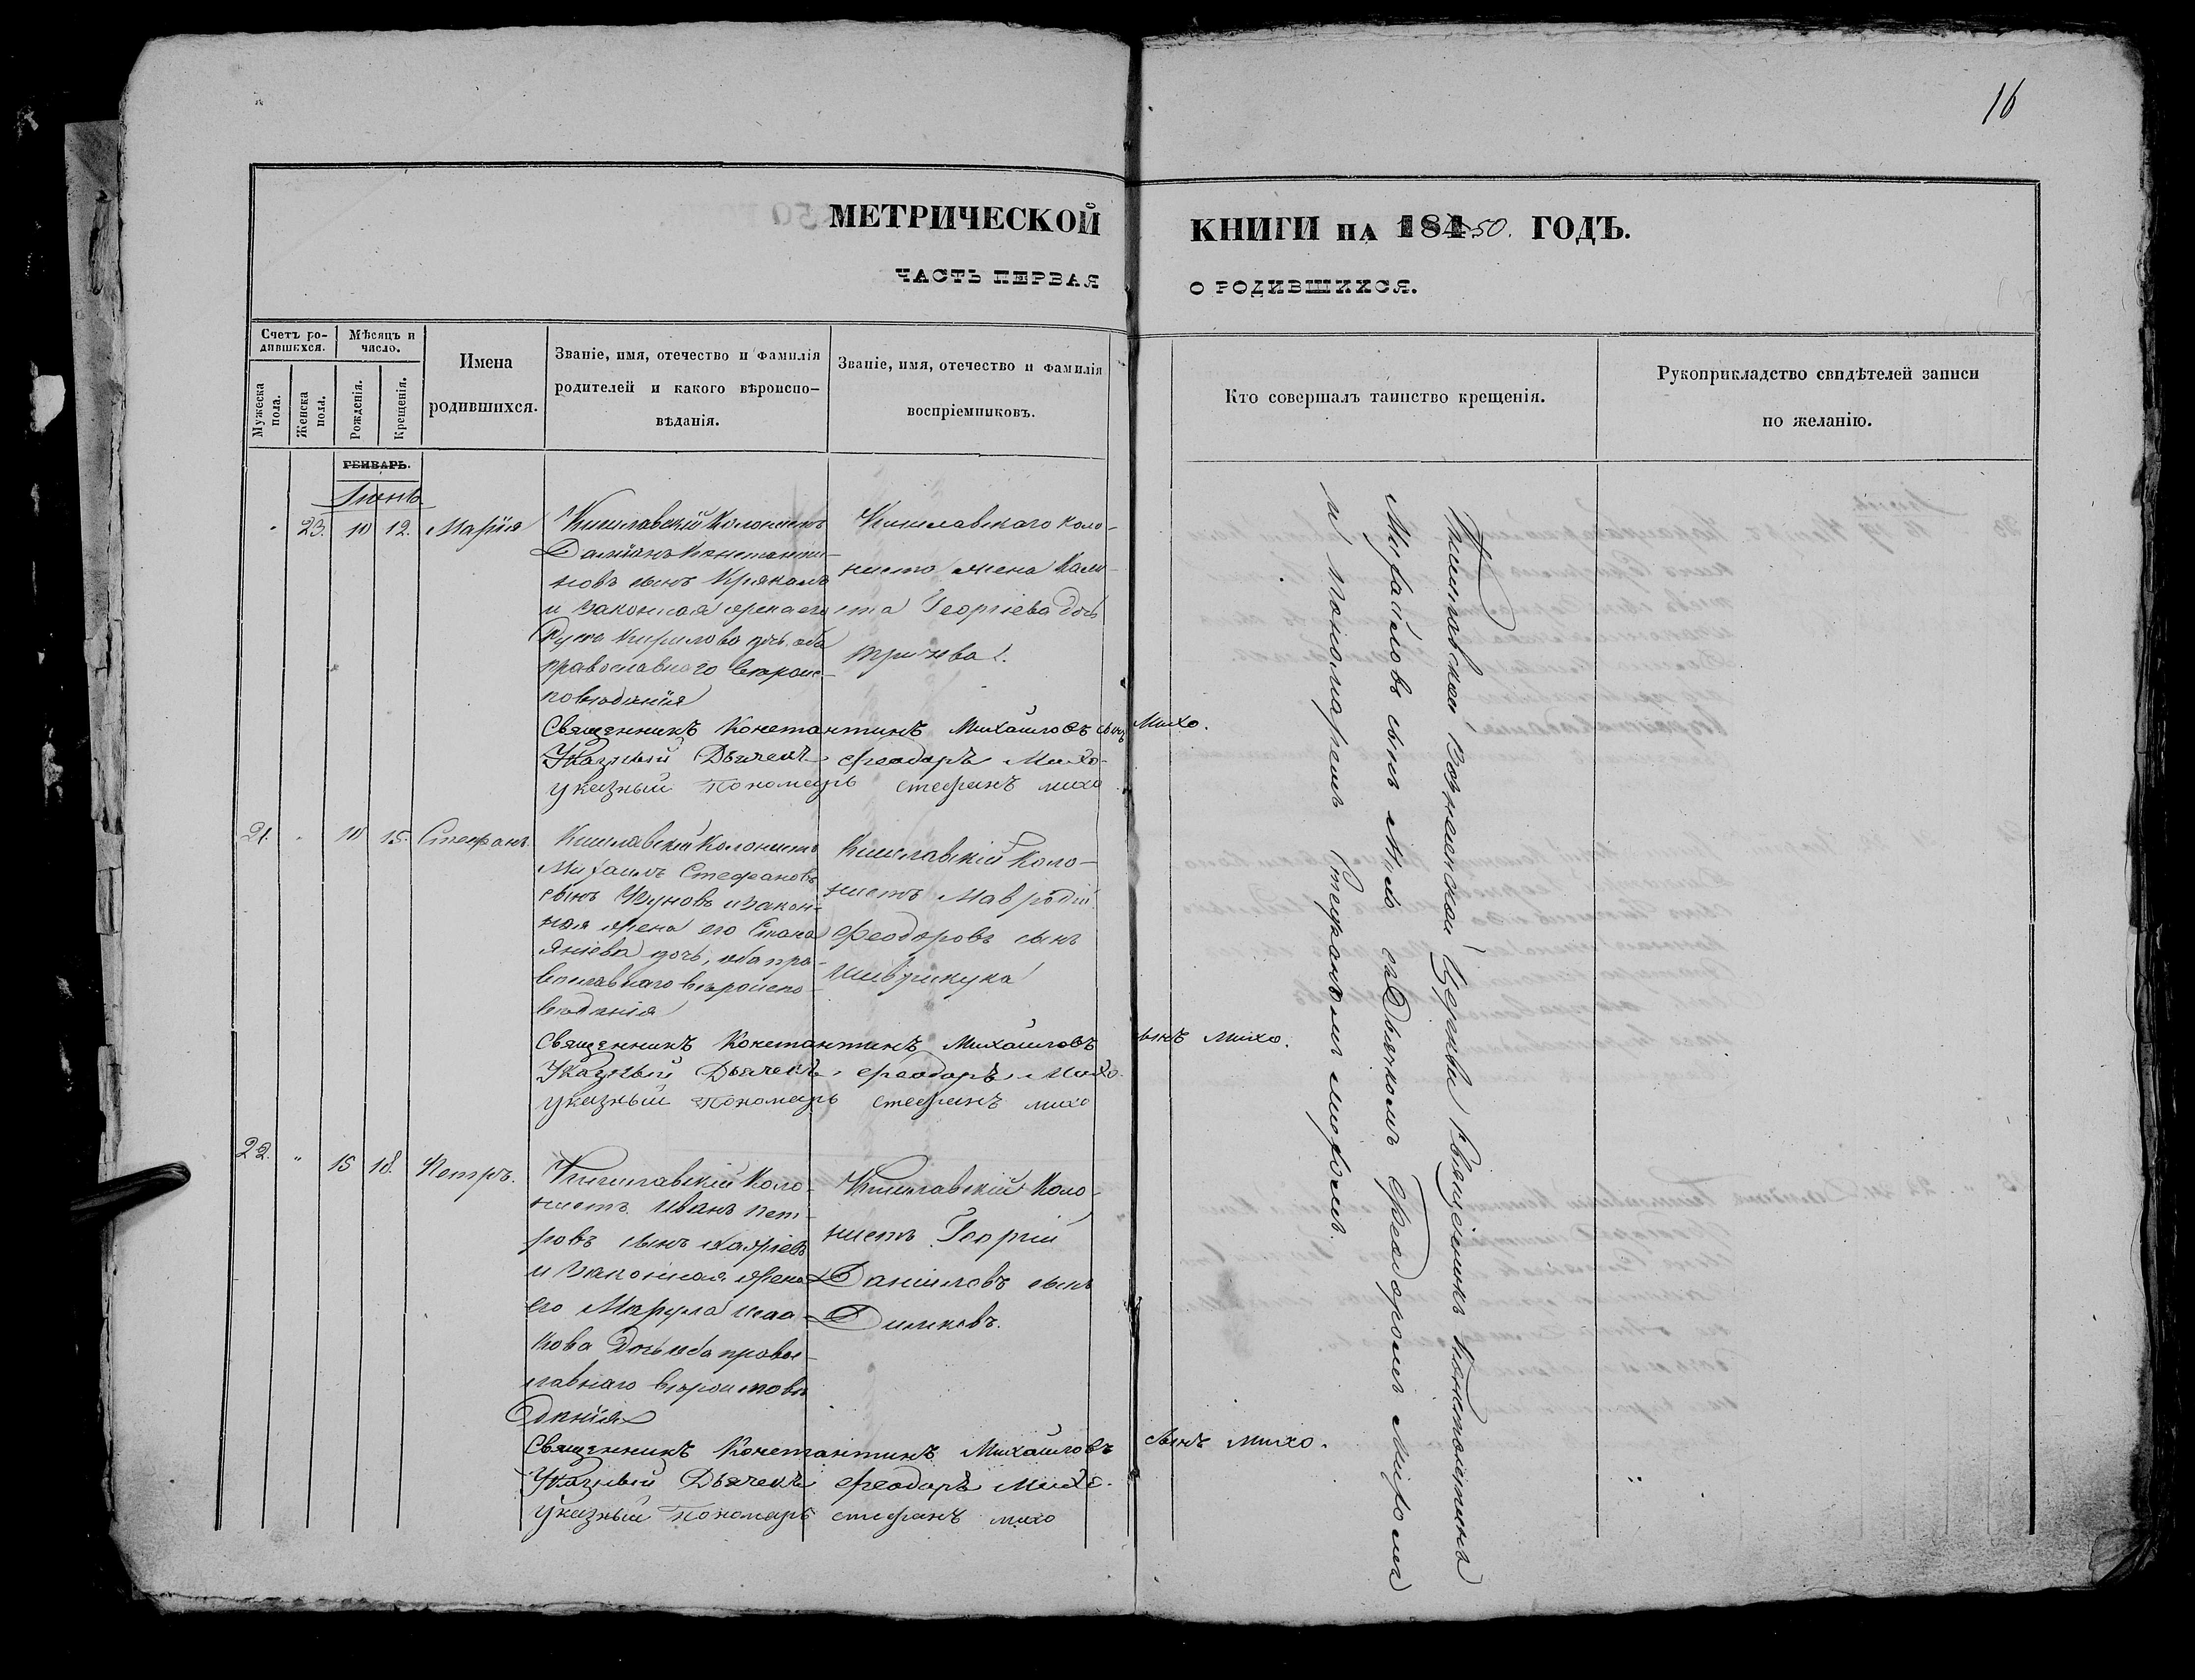 16
МЕТРИЧЕСКОЙ КНИГИ НА 184 50. ГОДЪ.
ЧАСТЬ ПЕРВАЯ О РОДИВШИХСЯ.
Счетъ родившихся.
Мужеска пола.
Женска пола.
Мѣсяцъ и число.
Рожденія.
Крещенія.
Имена
родившихся.
Званіе, имя, отечество и фамилія
родителей и какого вѣроиспо-
вѣданія.
Званіе, имя, отечество и фамилія
воспріемниковъ.
Кто совершалъ таинство крещенія.
Рукоприкладство свидѣтелей записи
по желанію.
ГЕНВАРЬ.
Іюнь
23. 10 12. Марія
Кишлавскій Колонистъ
Даміанъ Константи-
новъ сынъ
и законная жена его
Кирилова дочь, оба
православнаго вѣроис-
повѣданія
Кишлавскаго коло-
ниста жена Кали-
на Георгіева дочь
Священникъ Константинъ Михайловъ сынъ Михо.
Указный Дьячекъ Феодоръ Михо.
указный Пономарь стефанъ михо
21. 10 15. Стефанъ.
Кишлавскій Колонистъ
Михаилъ Стефановъ
сынъ и закон-
ная жена его Стана
Янієва дочь, оба пра-
вославнаго вѣроиспо-
вѣданія
Кишлавскій Коло-
нистъ Мавродій
Феодоровъ сынъ
Священникъ Константинъ Михайловъ сынъ Михо.
Указный Дьячекъ Феодоръ Михо.
указный Пономарь стефанъ михо
22. " 15 18. Петръ.
Кишлавскій Коло-
нистъ Иванъ Пет-
ровъ сынъ
и законная жена
его Марула
кова дочь оба правос-
лавнаго вѣроисповѣ
данія
Кишлавскій Коло-
нистъ Георгій
Даніиловъ сынъ
Димковъ.
Священникъ Константинъ Михайловъ сынъ михо.
Указный Дьячекъ Феодоръ Михо.
Указный Пономарь стефанъ михо
Кишлавской Вознесенской Церкви Священникъ Константинъ
Михайловъ сынъ Михо съ Дьячкомъ Феодоромъ Михомъ
и Пономаремъ Стефаномъ Михомъ.